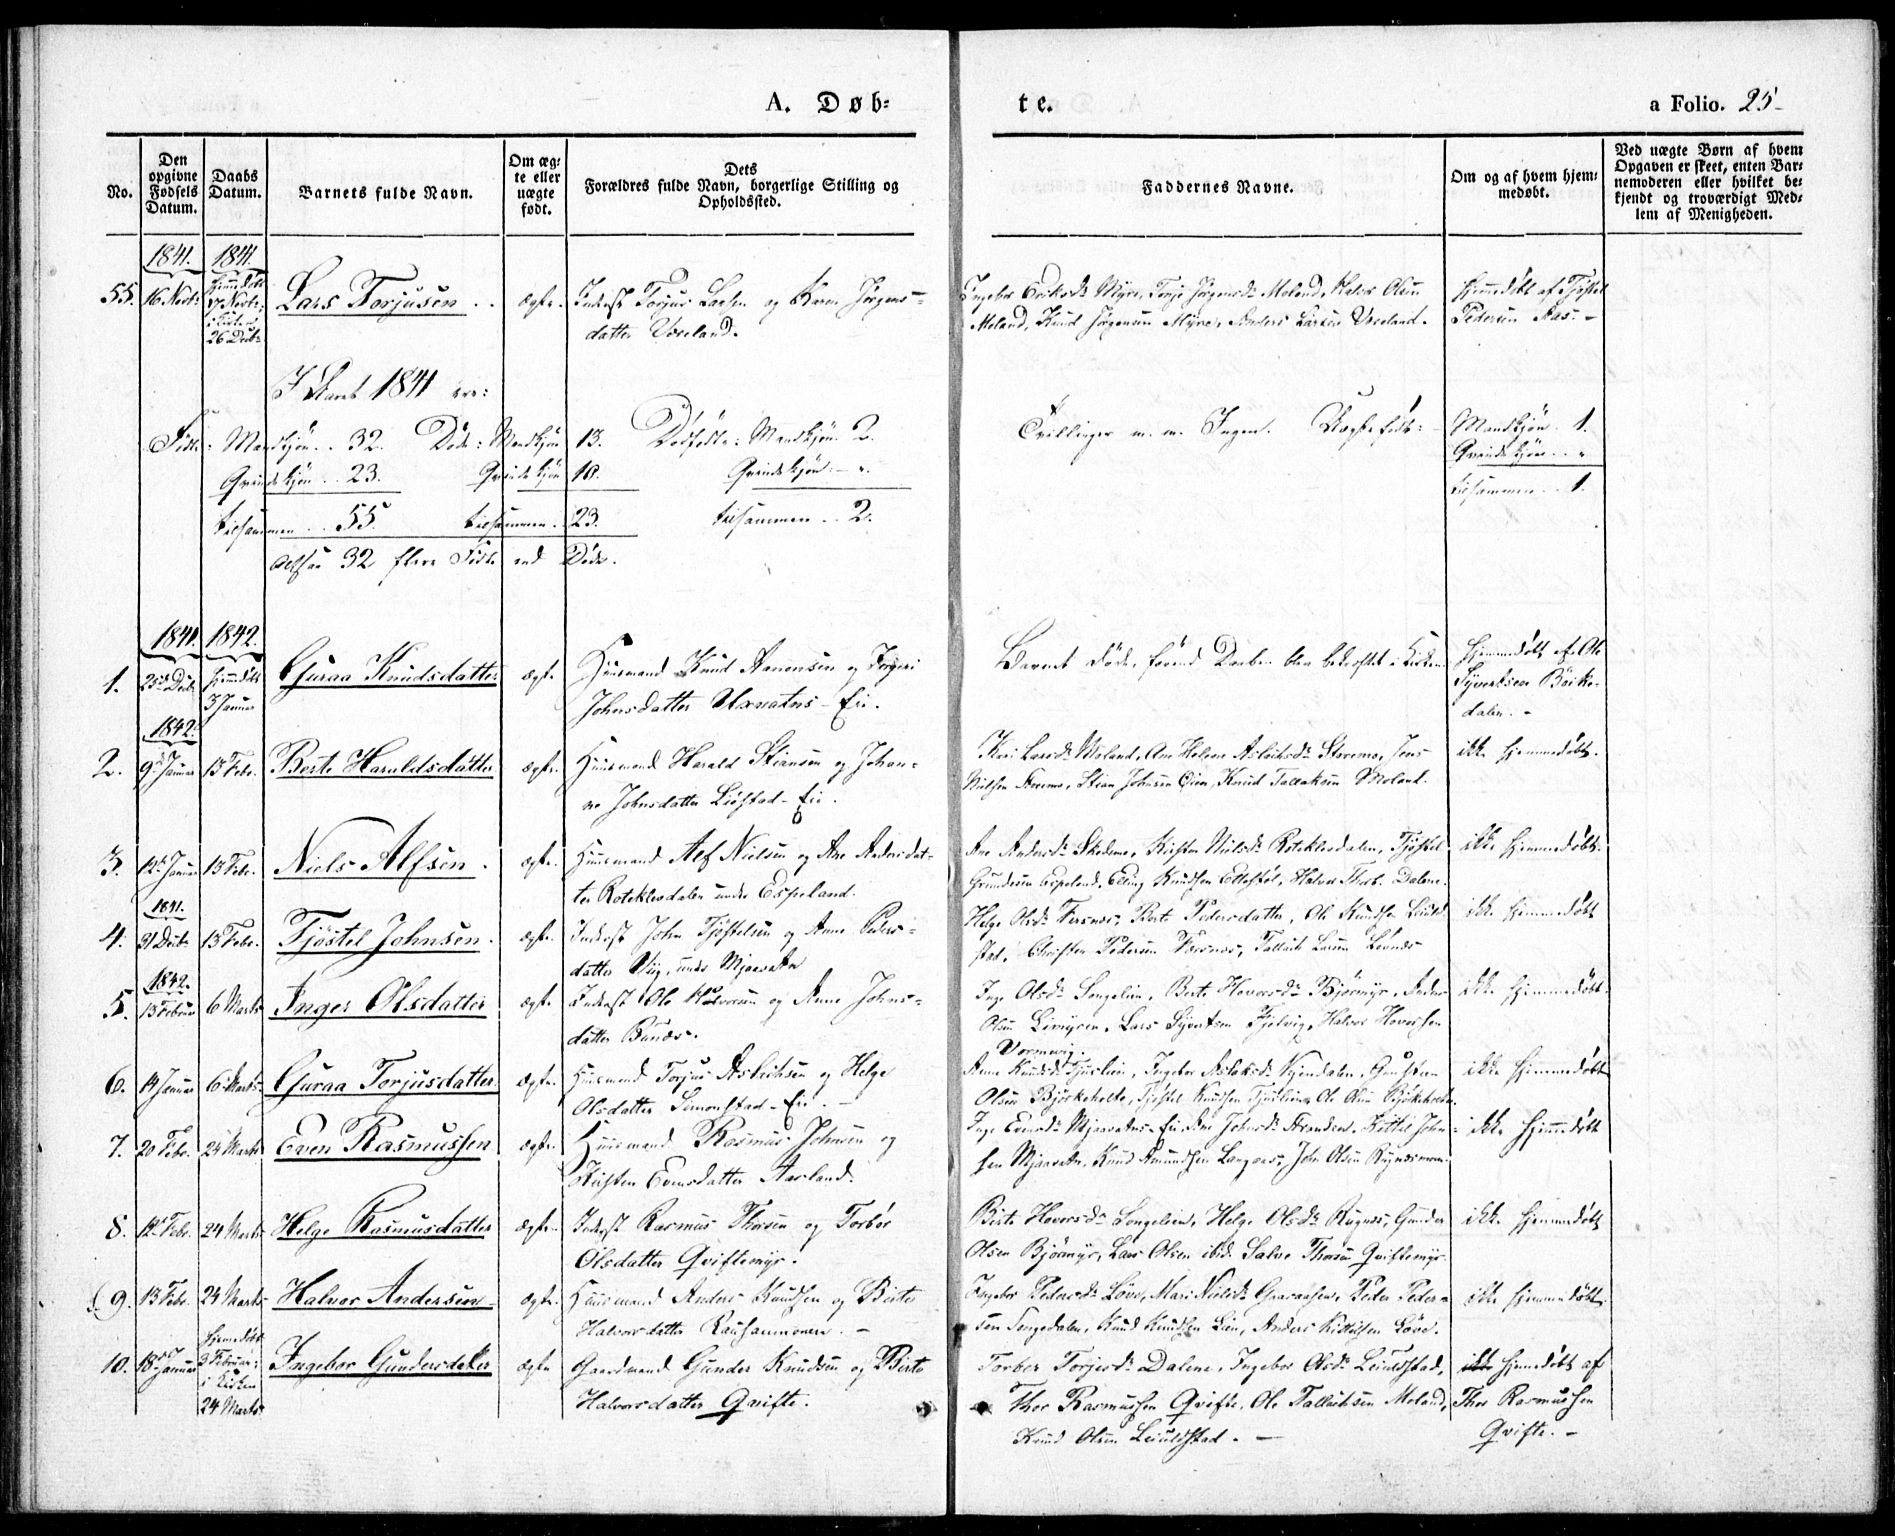 A. Døb=
te.
a Folio. 25-
No.
Den opgivne Fødsels Datum.
Daabs Datum.
Barnets fulde Navn.
Om æg= te eller uægte født.
Dets Forældres fulde Navn, borgerlige Stilling og Opholdssted.
Faddernes Navne.
Om og af hvem hjem= medøbt.
Ved uægte Børn af hvem Opgaven er skeet, enten Bar= nemoderen eller hvilket be= kjendt og troværdigt Med= lem af Menigheden.
1841. 1841.
55. 16 Novbr. hjemmedøbt 17 Novbr. i Kirken 26 Decbr. Lars Torjusen ægte. Inderst Torjus Larsen og Karen Jørgens=
datter Vaeland.
Ingebor Eriksdr Myre, Torje Jørgensdr Moland, Halvor Olsen
Moland, Knud Jørgensen Myre, Anders Larsen
hjemmedøbt af Tjøstel
Pedersen Aas. -
I Aaret 1841 ere:
Fødte: Mandkjøn .. 32. Døde: Mandkjøn 13. Dødfødte: Mandkjøn 2.
Qvindekjøn .. 23. Qvindekjøn 10. Qvindekjøn - ".
tilsammen .. 55. tilsammen .. 23. tilsammen .. 2.
altsaa 32 flere Fødte end Døde.
Tvillinger m. m. Ingen. Uægtefødte: Mandkjøn 1.
Qvindekjøn .. "
tilsammen .. 1.
1841. 1842.
1. 25de Decbr hjemmedøbt 3 Januar Guraa Knudsdatter ægte Huusmand Knud Aanonsen og Torgeri
Johnsdatter Uxvatns-Eie.
Barnet døde, førend Daaben blev bekræftet i Kirken
hjemmedøbt af Ole
Syvertsen Børke-
dalen. -
1842.
2. 9de Januar 13 Febr. Berte Haraldsdatter ægte. Huusmand Harald Stiansen og Johan-
ne Johnsdatter Liøstad-Eie.
Kari Larsdr Moland, Ane Helene Aslaksdr Storemo, Jens
Nielsen Storemo, Stian Johnsen Eien, Knud Tallaksen Moland.
ikke hjemmedøbt.
3. 12te Januar 13 Febr. Niels Alfsen. ægte. Huusmand Alf Nielsen og Ane Andersdat-
ter Roteklevdalen under Espeland.
Ane Andersdr Skedmo, Kirsten Nielsdr Roteklevdalen, Tjøstel
Gundersen Espeland, Elling Knudsen Ettestøl, Halvor Thorb. Dalene.
ikke hjemmedøbt.
1841.
4. 31 Decbr. 13 Febr. Tjøstel Johnsen. ægte. Inderst John Tjøstelsen og Anne Peders-
datter Viig, under Mjaavatn
Helge Olsdr Versnes, Berte Pedersdatter, Ole Knudsen Leiuld-
stad, Christen Pedersen Versnes, Tallak Larsen Løvnæs
ikke hjemmedøbt
1842.
5. 13 Februar 6 Marts Inger Olsdatter ægte Inderst Ole Halvorsen og Anne Johns-
datter Bunæs.
Inge Olsdr Songelien, Berte Hoversdr Bjørmyr, Anders
Olsen Limyren, Lars Syvertsen Fjelvig, Halvor Hoversen
Vormevig.
ikke hjemmedøbt
6. 14 Januar 6 Marts Guraa Torjusdatter ægte. Huusmand Torjus Aslachsen og Helge
Olsdatter Simonstad-Eie. -
Anne Knudsdr Tjuslien, Ingebor Aslaksdr Vejendalen, Gunsten
Olsen Bjørkeholte, Tjøstel Knudsen Tjuslien, Ole Olsen Bjørkeholte.
ikke hjemmedøbt
7. 20 Febr. 24 Marts Even Rasmussen ægte. Huusmand Rasmus Johnsen og
Kirsten Evensdatter Aarland.
Inge Evensdr Mjaavatns-Eie, Ane Johnsdr Stranden, Kittil John-
sen Mjaavatn, Knud Amundsen Langnes, John Olsen Rugnæsmoen.
ikke hjemmedøbt
8. 12te Febr. 24 Marts Helge Rasmusdatter ægte. Inderst Rasmus Thorsen og Torbør
Olsdatter Qviftemyr.
Birte Hoversdr Songelien, Helge Olsdr Rugnæs, Gunder
Olsen Bjørmyr, Lars Olsen ibid. Salve Thorsen Qviftemyr
ikke hjemmedøbt
9. 13 Febr. 24 Marts Halvor Andersen ægte. Huusmand Anders Knudsen og Birte
Halvorsdatter -
Ingebor Pedersdr Løve, Mari Nielsdr Peder Peder-
sen Songedalen, Knud Knudsen Lien, Anders Kittilsen Løve.
ikke hjemmedøbt.
10. 18de Januar hjemmedøbt 3 Februar: i Kirken 24 Marts Ingebor Gundersdatter ægte Gaardmand Gunder Knudsen og Birte
Halvorsdatter Qvifte.
Torber Torjersdr Dalene, Ingebor Olsdr Leiuldstad,
Thor Rasmussen Qvifte, Ole Tallachsen Moland,
Knud Olsen Leiuldstad. -
ikke hjemmedøbt af
Thor Rasmussen
Qvifte. -